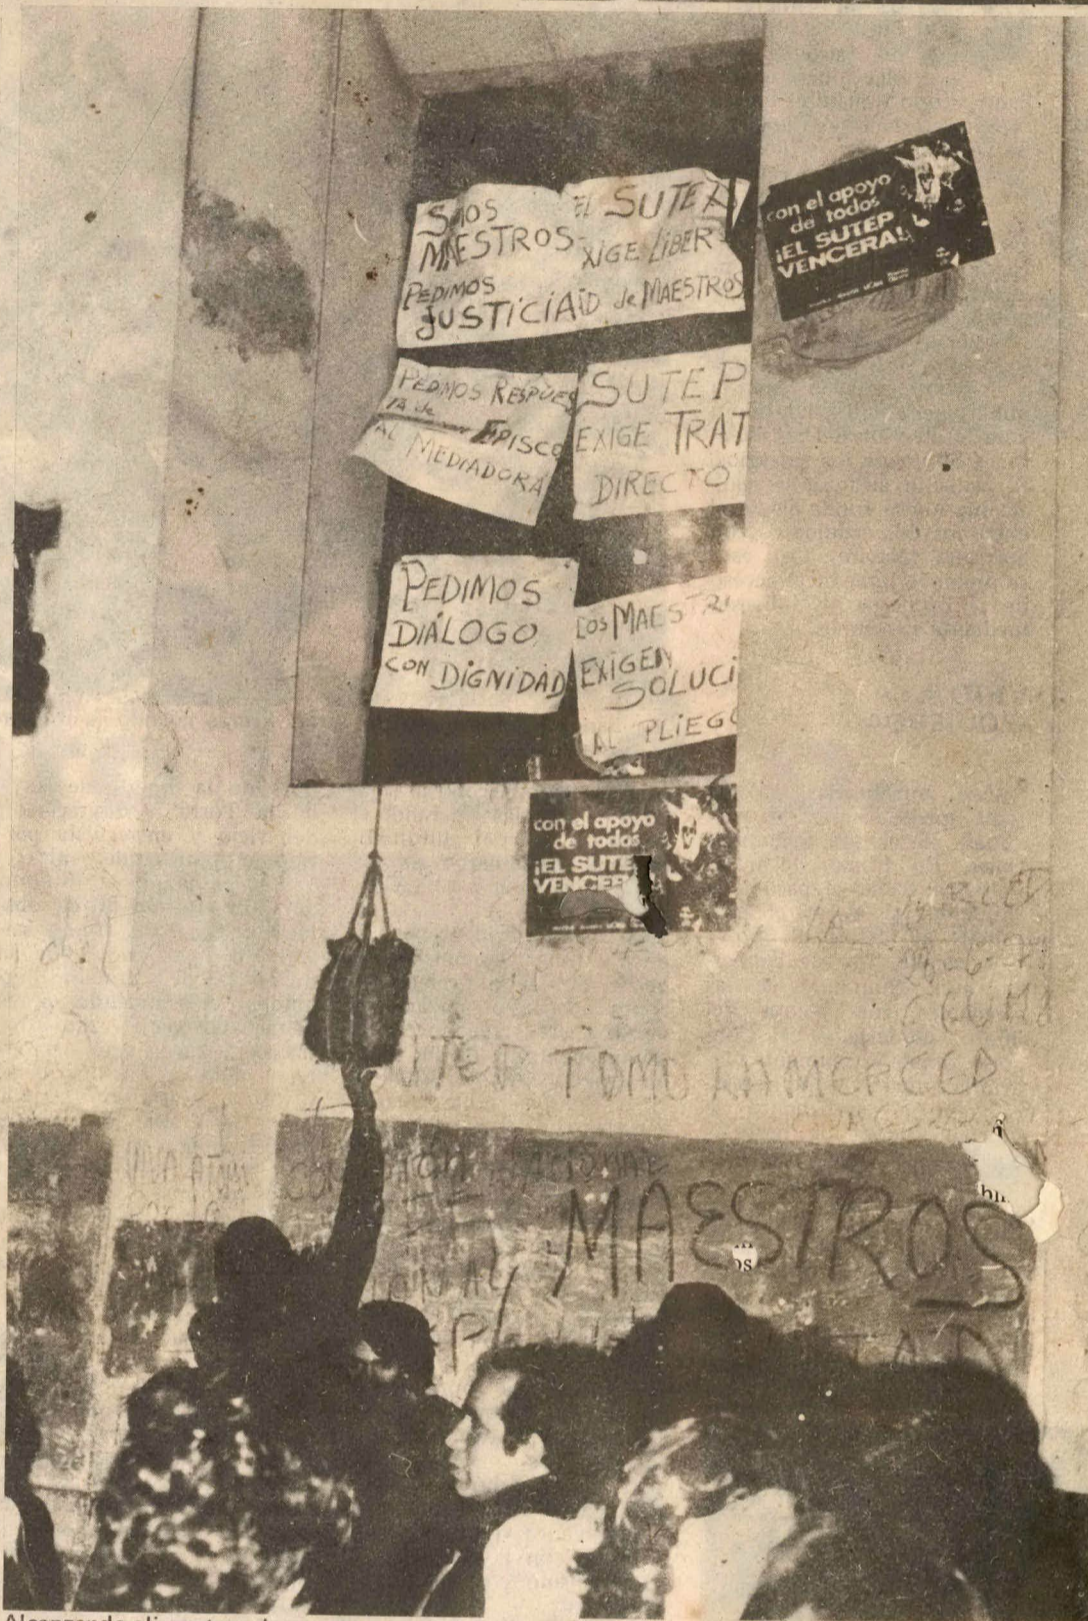 SOMOS
MAESTROS
PEDIMOS
JUSTICIA
EL SUTEP
EXIGE LIBER
AD de MAESTROS
con el apoyo
de todos
¡EL SUTEP
VENCERA!
PEDIMOS RESPUES
TA de EPISCO
AL MEDIADORA
SUTEP
EXIGE TRAT
DIRECTO
PEDIMOS
DIÁLOGO
CON DIGNIDAD
LOS MAESTR
EXIGEN
SOLUCI
AL PLIEGO
con el apoyo
de todos
¡EL SUTE
VENCER
LA MERCED
SUTEP TOMO LA MERCED
VIVA
NACIONAL
MAESTROS